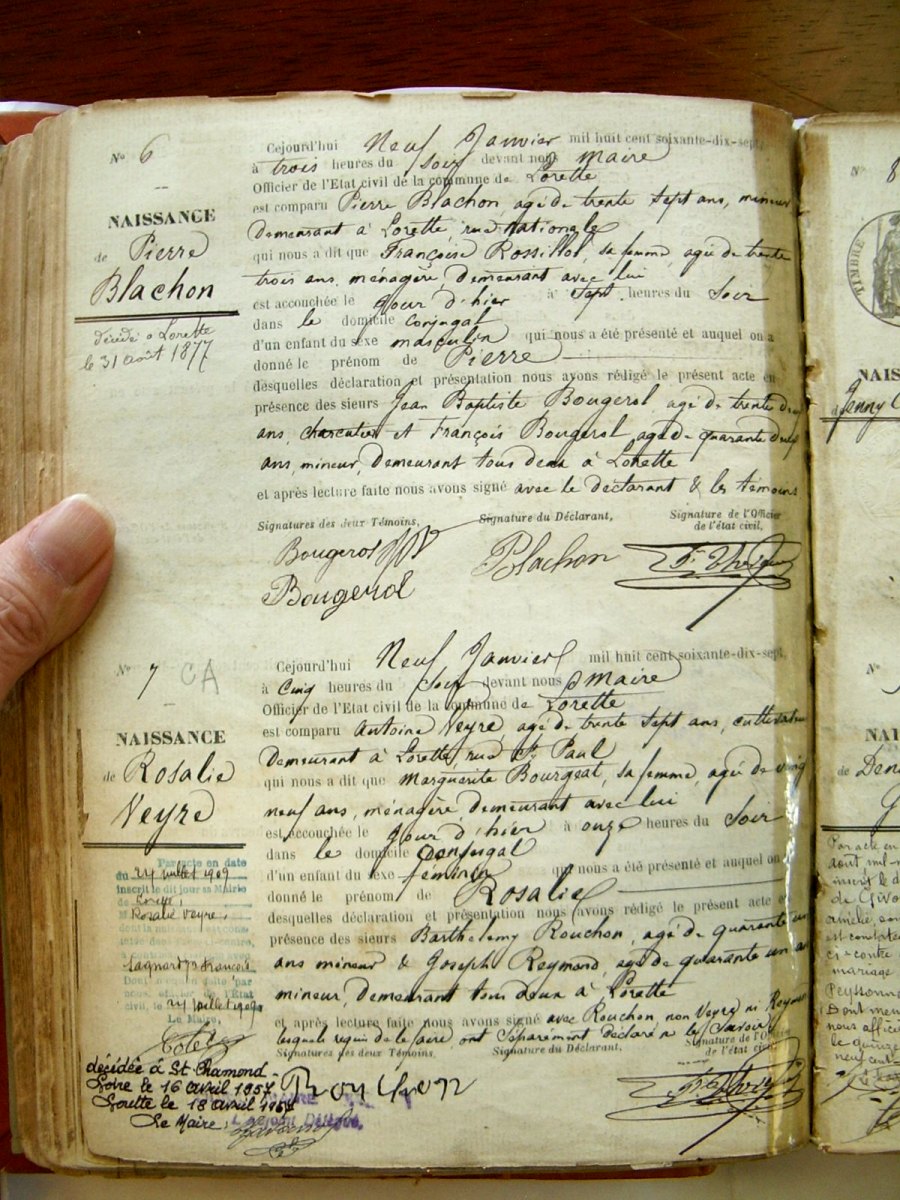 N° 6
NAISSANCE
de Pierre
Blachon
décédé à Lorette
le 31 août 1877
Cejourd'hui Neuf Janvier mil huit cent soixante-dix-sept,
à trois heures du Soir devant nous Maire
Officier de l'Etat civil de la commune de Lorette
est comparu Pierre Blachon, agé de trente sept ans, mineur
Demeurant à Lorette, rue Nationale
qui nous a dit que Françoise Rossillol, sa femme, agée de trente
trois ans, ménagère, demeurant avec lui
est accouchée le jour d'hier à Sept heures du Soir
dans le domicile Conjugal
d'un enfant du sexe masculin qui nous a été présenté et auquel on a
donné le prénom de Pierre
desquelles déclaration et présentation nous avons rédigé le présent acte en
présence des sieurs Jean Baptiste Bougerol, agé de trente deux
ans, charcutier et François Bougerol agé de quarante deux
ans, mineur, Demeurant tous deux à Lorette
et après lecture faite nous avons signé avec le déclarant & les témoins
Signatures des deux Témoins, Signature du Déclarant, Signature de l'Officier
de l'état civil,
Bougerol Blachon
Bougerol
N° 7 CA
NAISSANCE
de Rosalie
Veyre
Par acte en date
du 24 juillet 1909
inscrit le dit jour en Mairie
de
M Rosalie Veyre,
24 juillet 1909
Le Maire,
décédée à St Chamond
Loire le 16 avril 1957
Lorette le 18 avril 1957
Le Maire,
Cejourd'hui Neuf Janvier mil huit cent soixante-dix-sept,
à Cinq heures du Soir devant nous Maire
Officier de l'Etat civil de la commune de Lorette
est comparu Antoine Veyre, agé de trente sept ans, cultivateur
Demeurant à Lorette, rue St Paul
qui nous a dit que Marguerite Bourgeat, sa femme, agée de vingt
neuf ans, ménagère demeurant avec lui
est accouchée le jour d'hier à onze heures du Soir
dans le domicile Conjugal
d'un enfant du sexe féminin qui nous a été présenté et auquel on
donné le prénom de Rosalie
desquelles déclaration et présentation nous avons rédigé le présent acte en
présence des sieurs Barthelemy Rouchon, agé de quarante un
ans mineur & Joseph Reymond, agé de quarante un ans
mineur, Demeurant tous deux à Lorette
et après lecture faite nous avons signé avec Rouchon non Veyre ni Reymond
lesquels requis de le faire ont Séparément Déclaré ne le Savoir
Signatures des deux Témoins, Signature du Déclarant. Signature de l'Officier
de l'état civil
Rouchon
N° 8
TIMBRE
NAIS
Jenny
N°
NAI
de